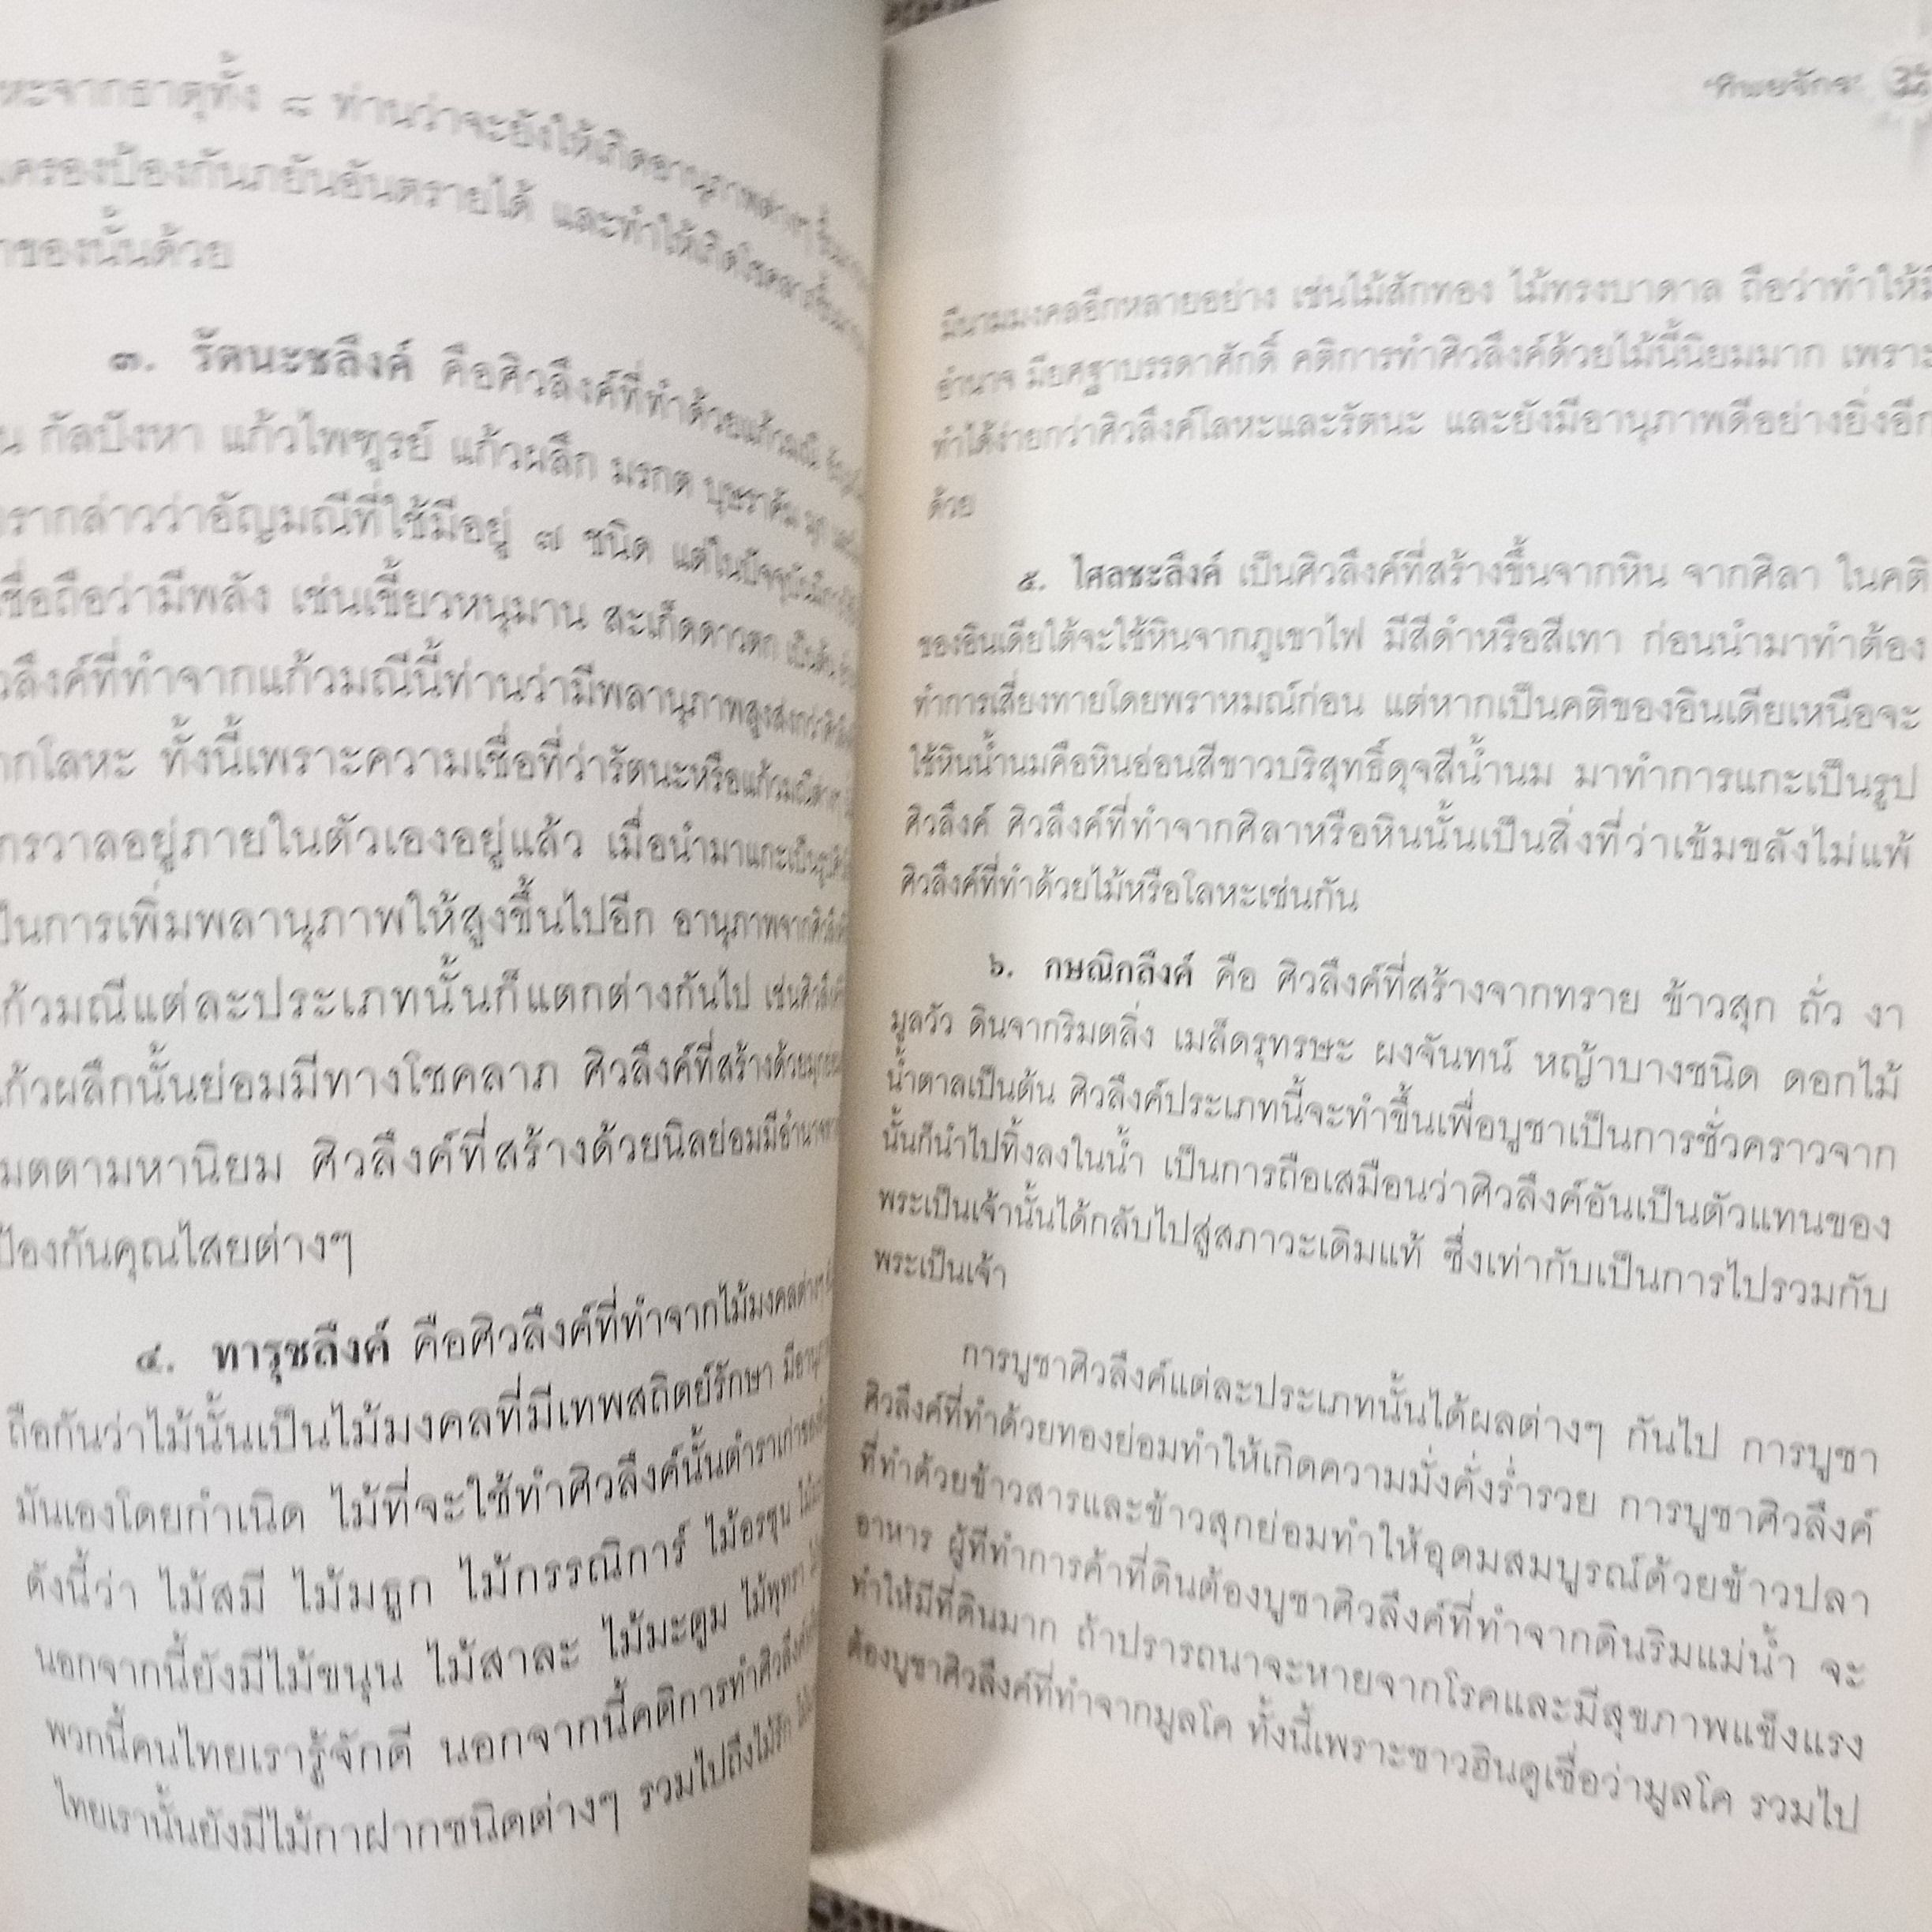 หะจากธาตุทั้ง ๘ ท่านว่าจะยังให้เกิดอานุภาพต่างๆ
เครื่องป้องกันภยันอันตรายได้ และทำให้เกิดโชคลาภ
ของนั้นด้วย
๓. รัตนะชลึงค์ คือศิวลึงค์ที่ทำด้วยแก้วมณี
กัลปังหา แก้วไพฑูรย์ แก้วผลึก มรกต บุษราคัม
รากล่าวว่าอัญมณีที่ใช้มีอยู่ ๗ ชนิด แต่ในปัจจุบัน
เชื่อถือว่ามีพลัง เช่นเขี้ยวหนุมาน สะเก็ดดาวตก
วลึงค์ที่ทำจากแก้วมณีนี้ท่านว่ามีพลานุภาพสูงส่งกว่า
ากโลหะ ทั้งนี้เพราะความเชื่อที่ว่ารัตนะหรือแก้วมณี
กรวาลอยู่ภายในตัวเองอยู่แล้ว เมื่อนำมาแกะเป็นรูป
เป็นการเพิ่มพลานุภาพให้สูงขึ้นไปอีก อานุภาพจาก
แก้วมณีแต่ละประเภทนั้นก็แตกต่างกันไป เช่น
แก้วผลึกนั้นย่อมมีทางโชคลาภ ศิวลึงค์ที่สร้างด้วย
เมตตามหานิยม ศิวลึงค์ที่สร้างด้วยนิลย่อมมีอำนาจ
ป้องกันคุณไสยต่างๆ
๔. ทารุชลึงค์ คือศิวลึงค์ที่ทำจากไม้มงคลต่างๆ
ถือกันว่าไม้นั้นเป็นไม้มงคลที่มีเทพสถิตย์รักษา
มันเองโดยกำเนิด ไม้ที่จะใช้ทำศิวลึงค์นั้นตำราเก่า
ดังนี้ว่า ไม้สมี ไม้มธูก ไม้กรรณิการ์ ไม้อรชุน
นอกจากนี้ยังมีไม้ขนุน ไม้สาละ ไม้มะตูม ไม้พุทรา
พวกนี้คนไทยเรารู้จักดี นอกจากนี้คติการทำศิวลึงค์
ไทยเรานั้นยังมีไม้กาฝากชนิดต่างๆ รวมไปถึงไม้รัก
"ทิพยจักร"
มีนามมงคลอีกหลายอย่าง เช่นไม้สักทอง ไม้ทรงบาดาล ถือว่าทำให้มี
อำนาจ มียศฐาบรรดาศักดิ์ คติการทำศิวลึงค์ด้วยไม้นี้นิยมมาก เพราะ
ทำได้ง่ายกว่าศิวลึงค์โลหะและรัตนะ และยังมีอานุภาพดีอย่างยิ่งอีก
ด้วย
๕. ไศลชะลึงค์ เป็นศิวลึงค์ที่สร้างขึ้นจากหิน จากศิลา ในคติ
ของอินเดียใต้จะใช้หินจากภูเขาไฟ มีสีดำหรือสีเทา ก่อนนำมาทำต้อง
ทำการเสี่ยงทายโดยพราหมณ์ก่อน แต่หากเป็นคติของอินเดียเหนือจะ
ใช้หินน้ำนมคือหินอ่อนสีขาวบริสุทธิ์ดุจสีน้ำนม มาทำการแกะเป็นรูป
ศิวลึงค์ ศิวลึงค์ที่ทำจากศิลาหรือหินนั้นเป็นสิ่งที่ว่าเข้มขลังไม่แพ้
ศิวลึงค์ที่ทำด้วยไม้หรือโลหะเช่นกัน
๖. กษณิกลึงค์ คือ ศิวลึงค์ที่สร้างจากทราย ข้าวสุก ถั่ว งา
มูลวัว ดินจากริมตลิ่ง เมล็ดรุทรษะ ผงจันทน์ หญ้าบางชนิด ดอกไม้
น้ำตาลเป็นต้น ศิวลึงค์ประเภทนี้จะทำขึ้นเพื่อบูชาเป็นการชั่วคราวจาก
นั้นก็นำไปทิ้งลงในน้ำ เป็นการถือเสมือนว่าศิวลึงค์อันเป็นตัวแทนของ
พระเป็นเจ้านั้นได้กลับไปสู่สภาวะเดิมแท้ ซึ่งเท่ากับเป็นการไปรวมกับ
พระเป็นเจ้า
การบูชาศิวลึงค์แต่ละประเภทนั้นได้ผลต่างๆ กันไป การบูชา
ศิวลึงค์ที่ทำด้วยทองย่อมทำให้เกิดความมั่งคั่งร่ำรวย การบูชาศิวลึงค์
ที่ทำด้วยข้าวสารและข้าวสุกย่อมทำให้อุดมสมบูรณ์ด้วยข้าวปลา
อาหาร ผู้ที่ทำการค้าที่ดินต้องบูชาศิวลึงค์ที่ทำจากดินริมแม่น้ำ จะ
ทำให้มีที่ดินมาก ถ้าปรารถนาจะหายจากโรคและมีสุขภาพแข็งแรง
ต้องบูชาศิวลึงค์ที่ทำจากมูลโค ทั้งนี้เพราะชาวฮินดูเชื่อว่ามูลโค รวมไป